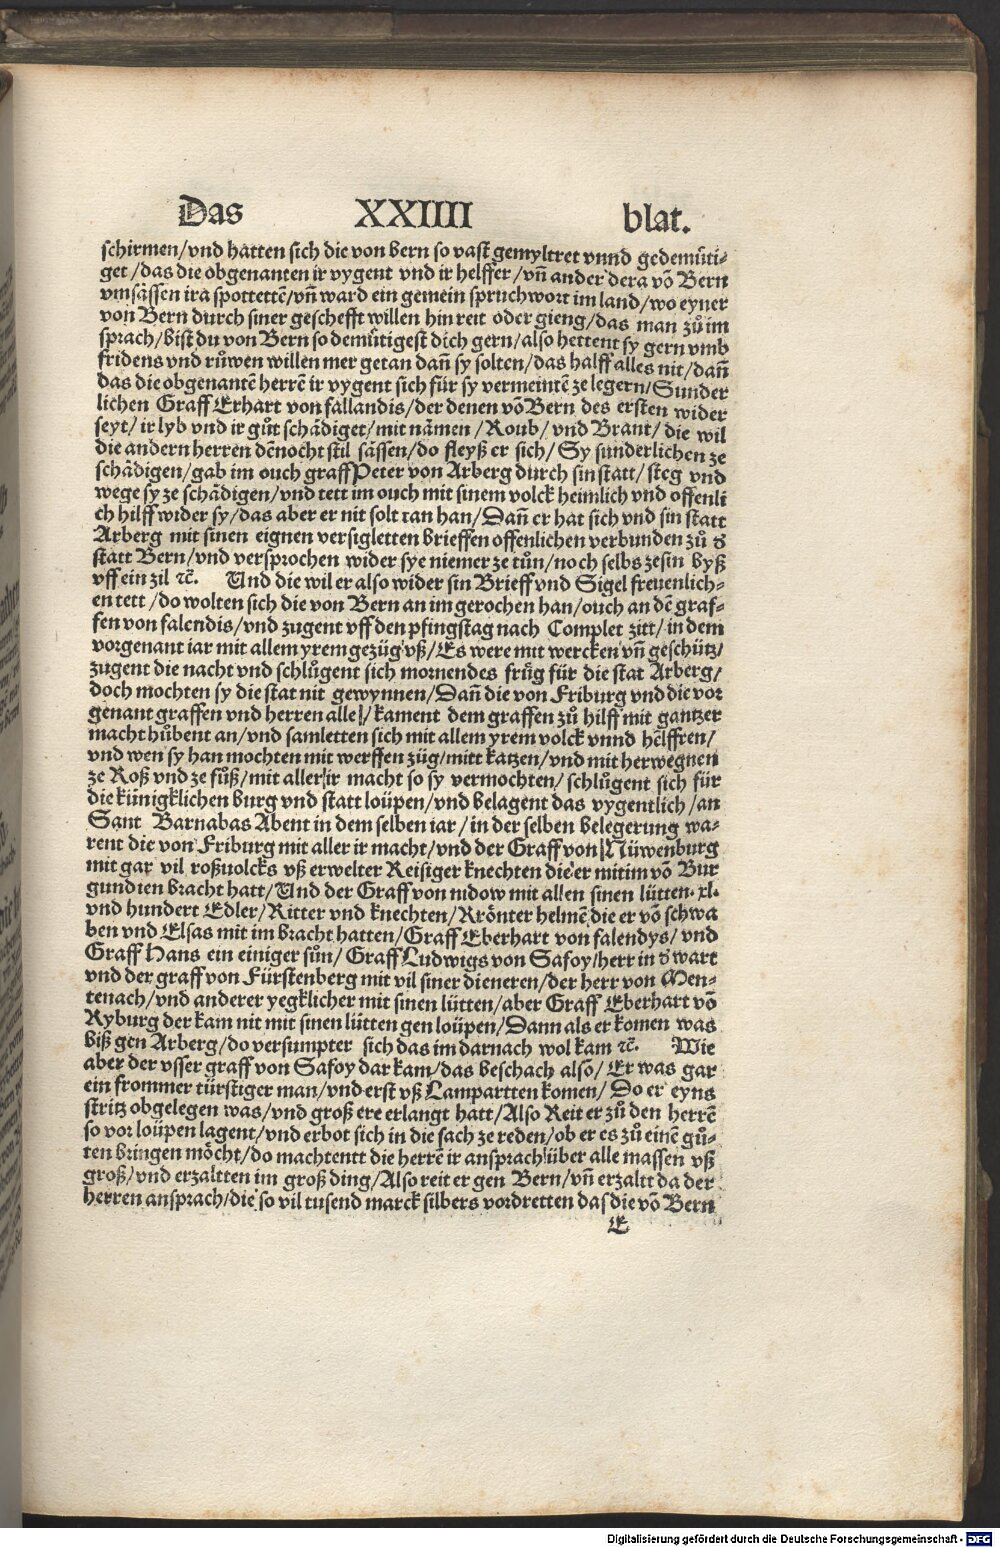 Das XXIIII blat.
schirmen/vnd hatten sich die von bern so vast gemyltret vnnd gedemüti⸗
get/das die obgenanten ir vygent vnd ir helffer/vn̄ ander dera vō Bern
vmsässen ira spottettē/vn̄ ward ein gemein spruchwort im land/wo eyner
von Bern durch siner geschefft willen hin reit oder gieng/das man zů im
sprach/bist du von Bern so demütigest dich gern/also hettent sy gern vmb
fridens vnd růwen willen mer getan dan̄ sy solten/das halff alles nit/dan̄
das die obgenantē herrē ir vygent sich für sy vermeintē ze legern/Sunder
lichen Graff Erhart von fallandis/der denen vō Bern des ersten wider
seyt/ir lyb vnd ir gůt schädiget/mit nämen/Roub/vnd Brant/die wil
die andern herren dēnocht stil sässen/do fleyß er sich/Sy sunderlichen ze
schädigen/gab im ouch graff Peter von Arberg durch sin statt/steg vnd
wege sy ze schädigen/vnd tett im ouch mit sinem volck heimlich vnd offenli
ch hilff wider sy/das aber er nit solt tan han/Dan̄ er hat sich vnd sin statt
Arberg mit sinen eignen versigletten brieffen offenlichen verbunden zů d̕
statt Bern/vnd versprochen wider sye niemer ze tůn/noch selbs ze sin byß
vff ein zil ⁊c̄. Und die wil er also wider sin Brieff vnd Sigel freuenlich⸗
en tett/do wolten sich die von Bern an im gerochen han/ouch an dē graf⸗
fen von falendis/vnd zugent vff den pfingstag nach Complet zitt/in dem
vorgenant iar mit allem yrem gezüg vß/Es were mit wercken vn̄ geschütz/
zugent die nacht vnd schlůgent sich mornendes frůg für die stat Arberg/
doch mochten sy die stat nit gewynnen/Dan̄ die von Friburg vnd die vor
genant graffen vnd herren alle/kament dem graffen zů hilff mit gantzer
macht hůbent an/vnd samletten sich mit allem yrem volck vnnd helffren/
vnd wen sy han mochten mit werffen züg/mitt katzen/vnd mit herwegnen
ze Roß vnd ze fůß/mit aller ir macht so sy vermochten/schlůgent sich für
die künigklichen burg vnd statt loüpen/vnd belagent das vygentlich/an
Sant Barnabas Abent in dem selben iar/in der selben belegerung wa⸗
rent die von Friburg mit aller ir macht/vnd der Graff von Nüwenburg
mit gar vil roßuolcks vß erwelter Reisiger knechten die er mit im vō Bur
gundien bracht hatt/Und der Graff von nidow mit allen sinen lütten. xl.
vnd hundert Edler/Ritter vnd knechten/Krönter helmē die er vō schwa
ben vnd Elsas mit im bracht hatten/Graff Eberhart von falendys/vnd
Graff Hans ein einiger sůn/Graff Ludwigs von Safoy/herr in d̕ wart
vnd der graff von Fürstenberg mit vil siner dieneren/der herr von Men⸗
tenach/vnd anderer yegklicher mit sinen lütten/aber Graff Eberhart vō
Kyburg der kam nit mit sinen lütten gen loüpen/Dann als er komen was
biß gen Arberg/do versumpter sich das im darnach wol kam ⁊c̄. Wie
aber der vsser graff von Safoy dar kam/das beschach also/Er was gar
ein frommer türstiger man/vnd erst vß Lampartten komen/Do er eyns
stritz obgelegen was/vnd groß ere erlangt hatt/Also Reit er zů den herrē
so vor loüpen lagent/vnd erbot sich in die sach ze reden/ob er es zů einē gů⸗
ten bringen möcht/do machtentt die herrē ir ansprach über alle massen vß
groß/vnd erzaltten im groß ding/Also reit er gen Bern/vn̄ erzaltt da der
herren ansprach/die so vil tusend marck silbers vordretten das die vō Bern
E
Digitalisierung gefördert durch die Deutsche Forschungsgemeinschaft - DFG